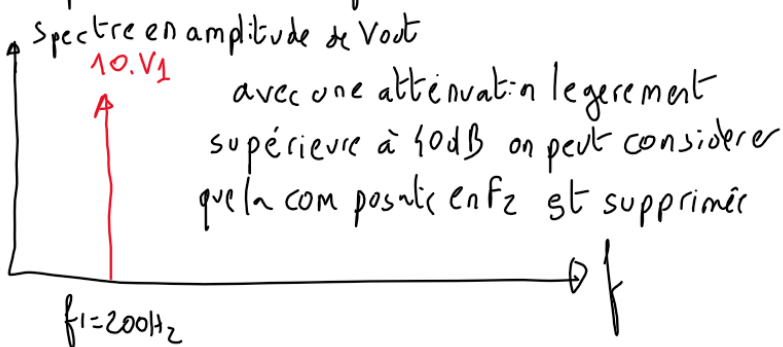 Spectre en amplitude de Vout
10.V1
avec une attenuation legerement
supérieure à 40dB on peut considerer
que la composante en F2 est supprimée
f
f1=200Hz